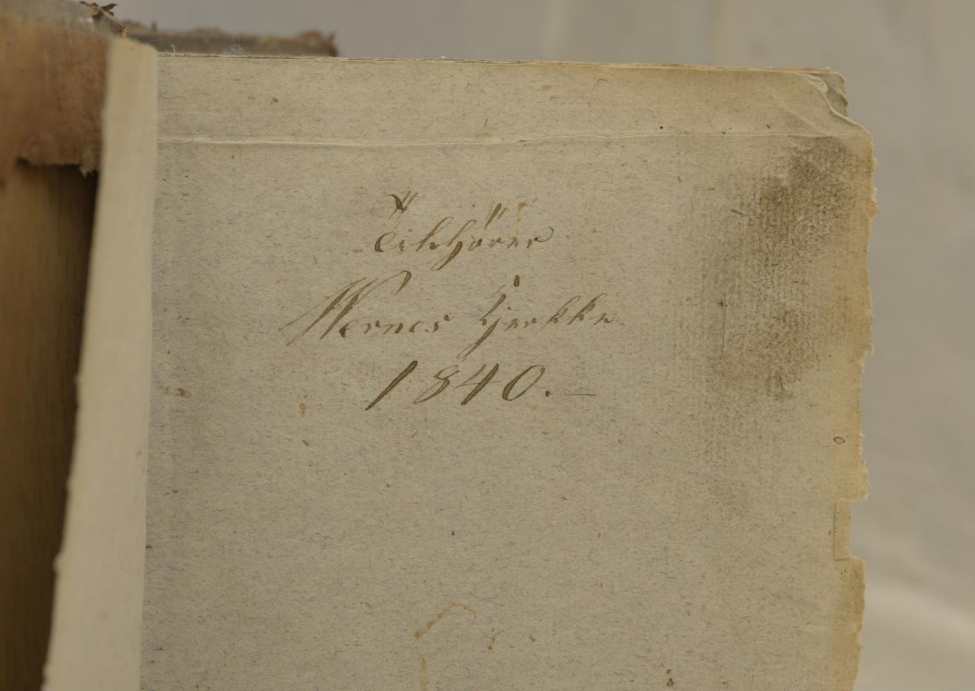 Tilhører
Wernes Kjerkke
1840.